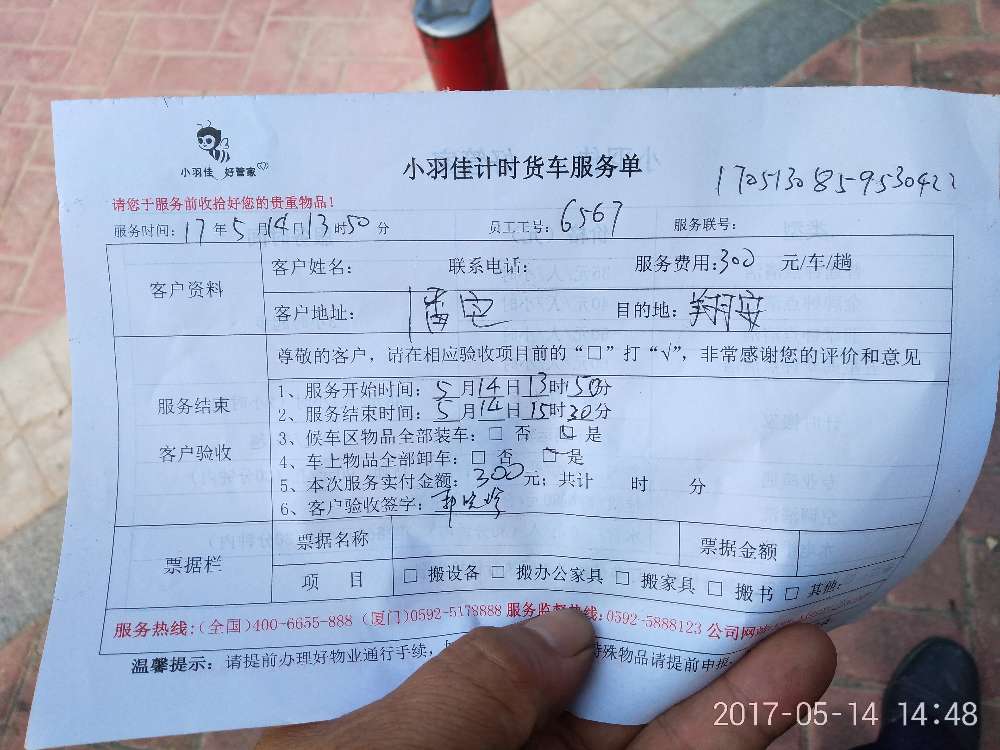 小羽佳 好管家
小羽佳计时货车服务单
1705130859530422
请您于服务前收拾好您的贵重物品！
服务时间：17年5月14日13时50分 员工工号：6567 服务联号：
客户资料
客户姓名： 联系电话： 服务费用：300 元/车/趟
客户地址： 目的地：翔安
尊敬的客户，请在相应验收项目前的“□”打“√”，非常感谢您的评价和意见
服务结束
客户验收
1、服务开始时间：5月14日13时50分
2、服务结束时间：5月14日15时30分
3、候车区物品全部装车：□ 否 □ 是
4、车上物品全部卸车：□ 否 □ 是
5、本次服务实付金额：300元；共计 时 分
6、客户验收签字：
票据栏
票据名称 票据金额
项 目 □ 搬设备 □ 搬办公家具 □ 搬家具 □ 搬书 □ 其他：
服务热线：(全国)400-6655-888 (厦门)0592-5178888 服务监督热线：0592-5888123 公司网
温馨提示：请提前办理好物业通行手续， 特殊物品请提前申报
2017-05-14 14:48